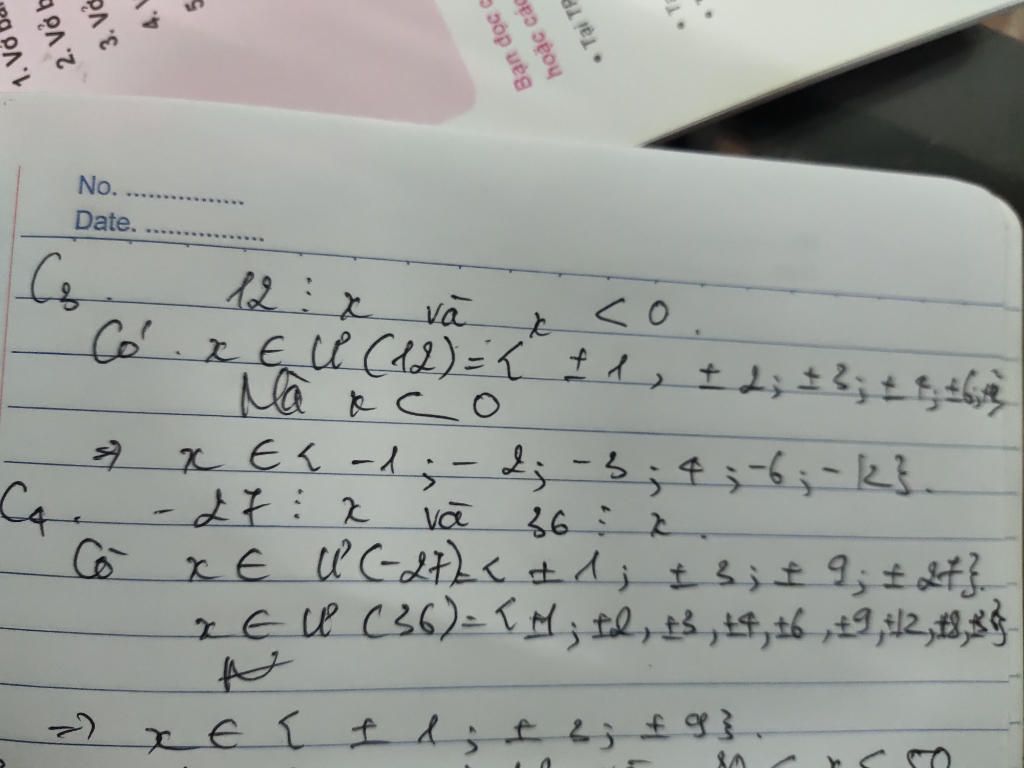 1. Vở bài
2. Vở b
3. Vở
4. V
5
Bạn đọc c
hoặc các
• Tại TP
• Tạ
No. ..................
Date. ..................
C3. 12 ⋮ x và x < 0.
Có. x ∈ Ư(12) = { ±1, ±2; ±3; ±4; ±6;
Mà x < 0
⇒ x ∈ { -1; -2; -3; 4; -6; -12}.
C4. -27 ⋮ x và 36 ⋮ x.
Có x ∈ Ư(-27) = { ±1; ±3; ±9; ±27}.
x ∈ Ư(36) = { ±1; ±2, ±3, ±4, ±6, ±9, ±12, ±18, ±36}
⇒ x ∈ { ±1; ±3; ±9}.
< x < 50